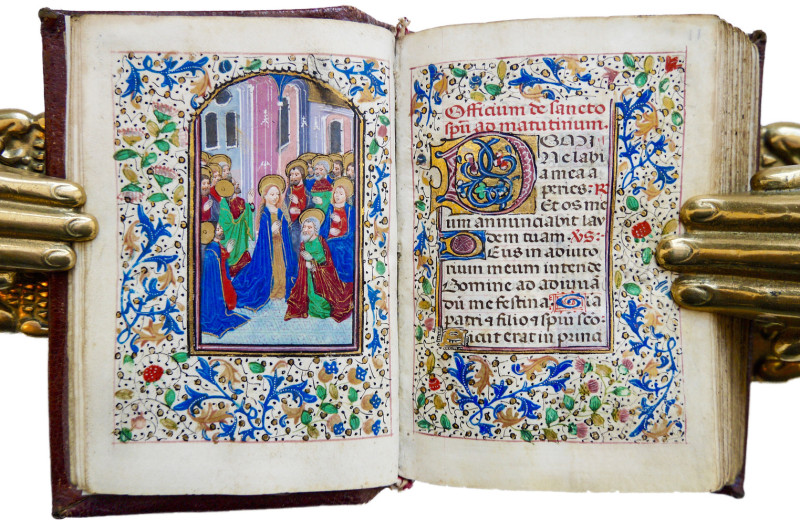 Officium de sancto
spũ ad matutinum.
DOMI
NE labi
a mea a
peries: R
Et os me
um annunciabit lau
dem tuam. VS:
DEus in adiuto
rium meum intende
Domine ad adiuuã
dũ me festina Glia
patri ⁊ filio ⁊ spũi sco
Sicut erat in princi